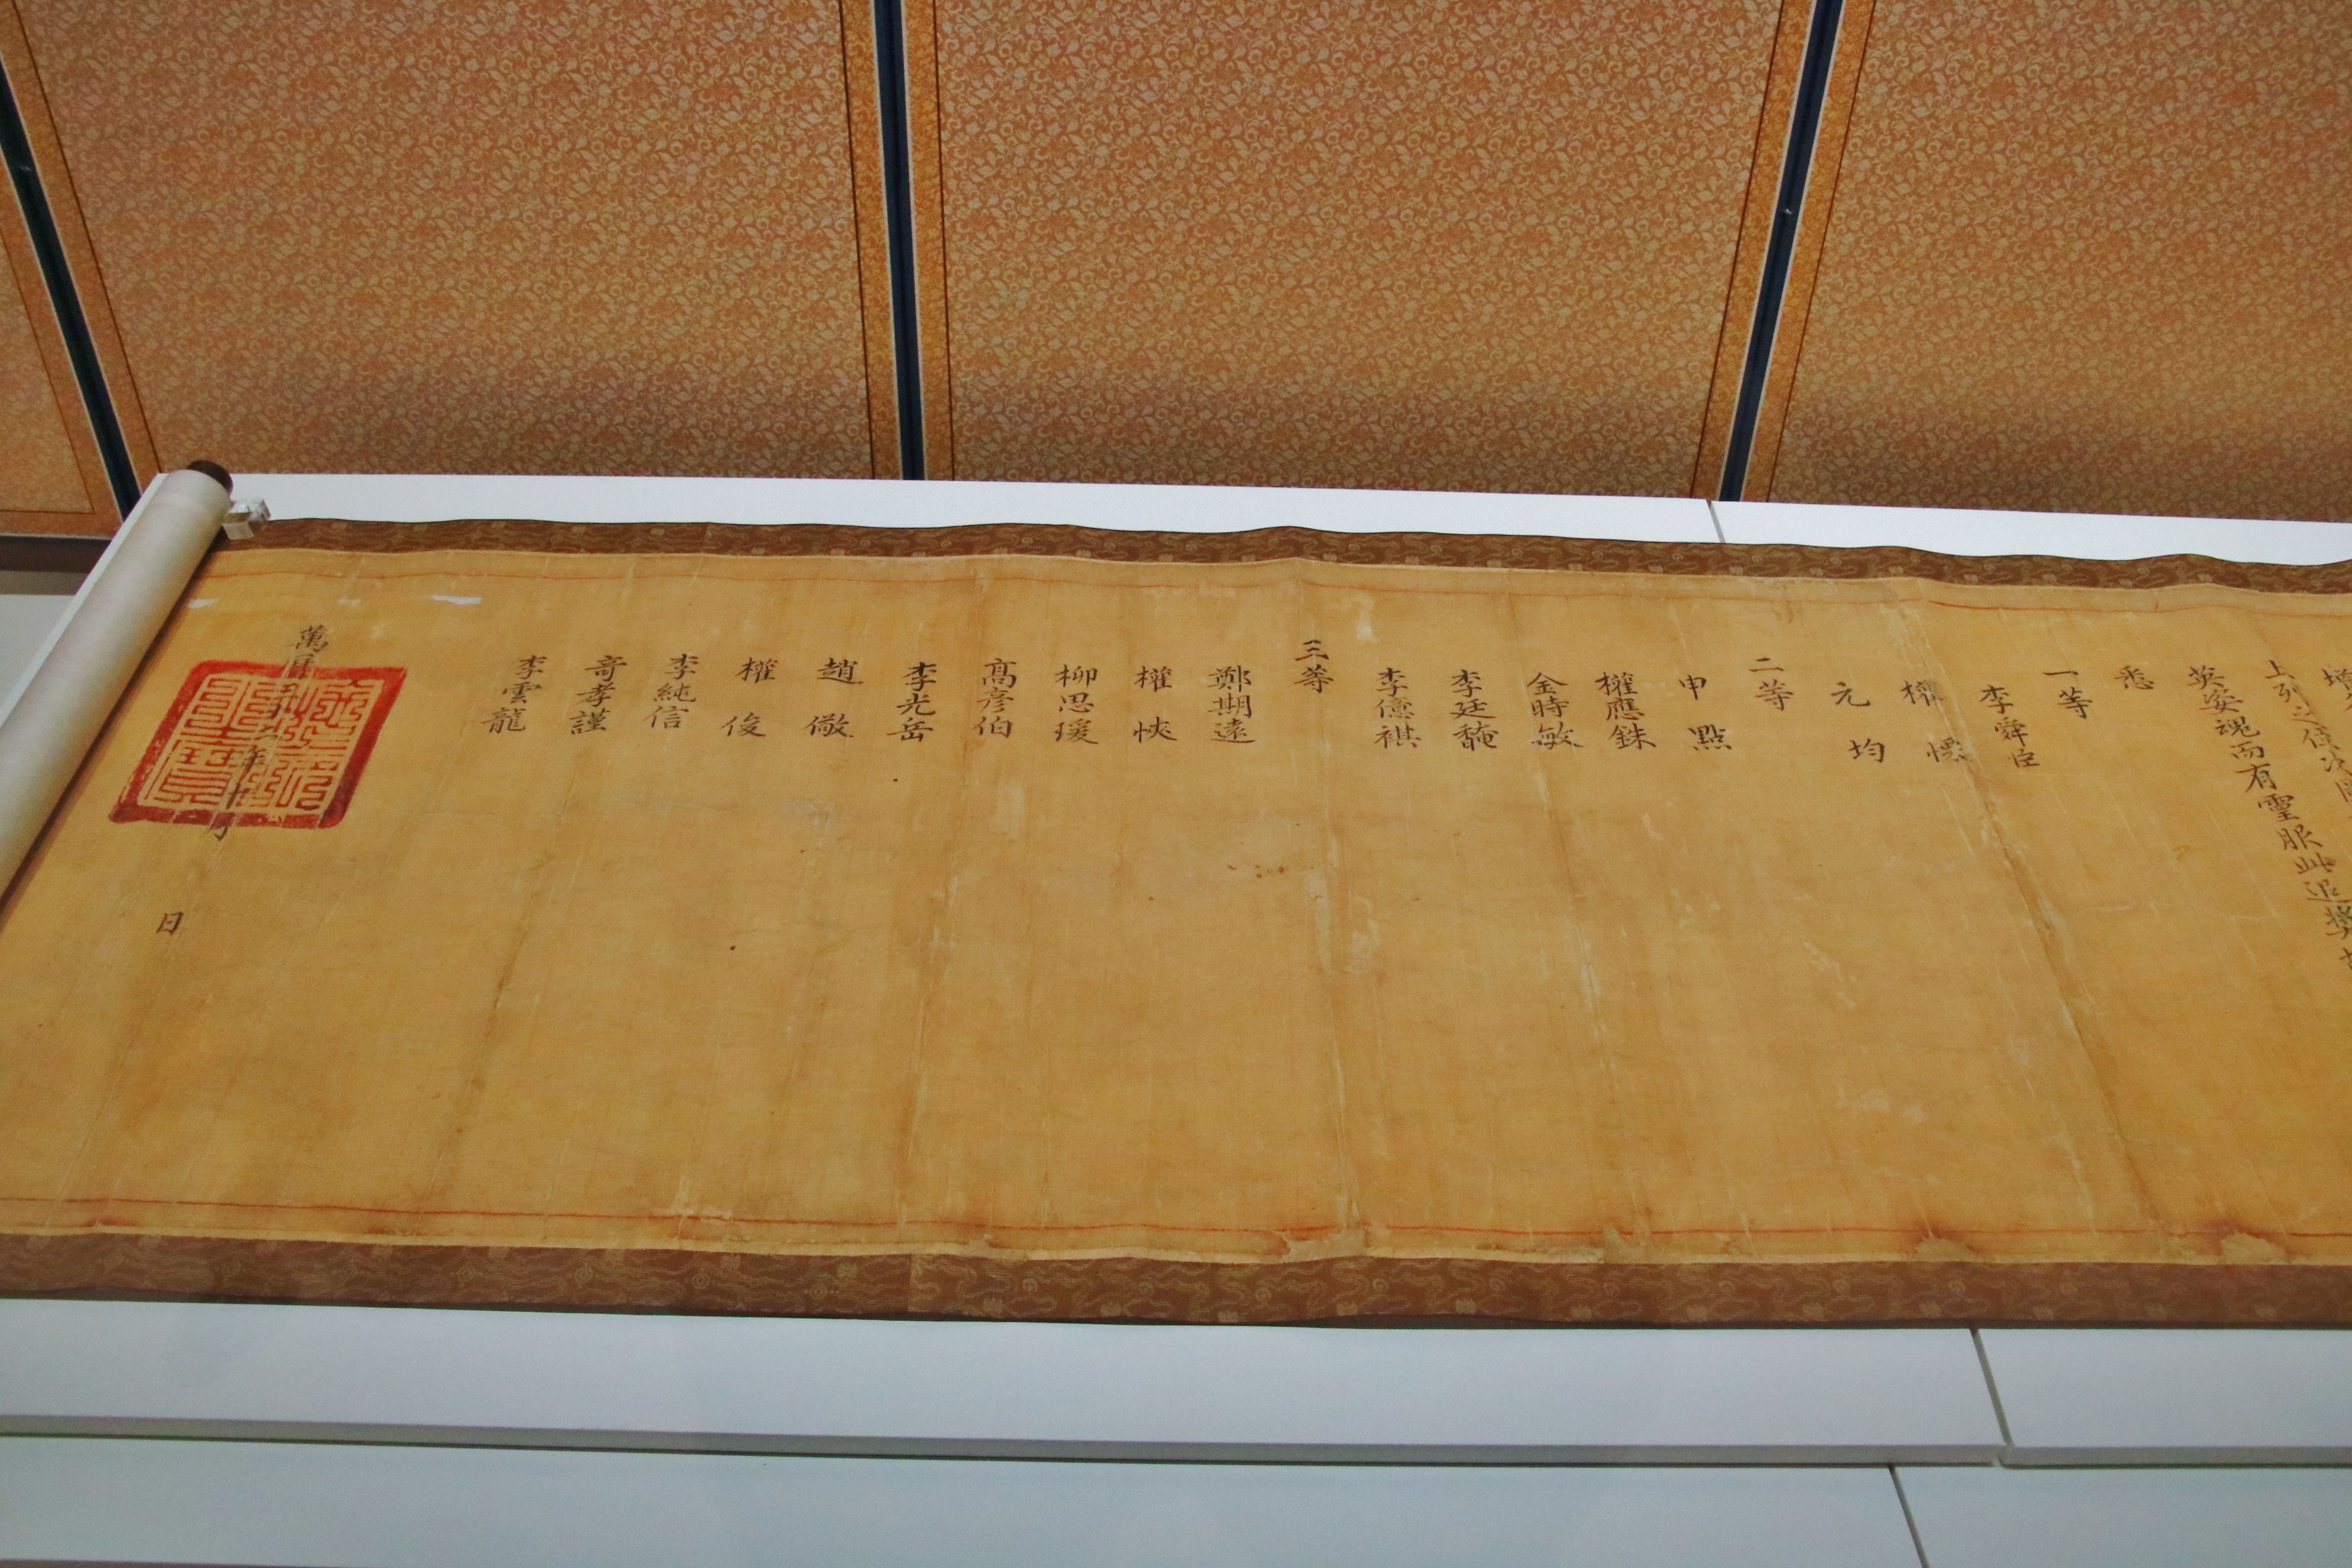 上列之
英姿魂而有靈服此追獎
悉
一等
李舜臣
權慄
元均
二等
申點
權應銖
金時敏
李廷馣
李億祺
三等
鄭期遠
權悏
柳思瑗
高彥伯
李光岳
趙儆
權俊
李純信
奇孝謹
李雲龍
萬曆 年十月
日